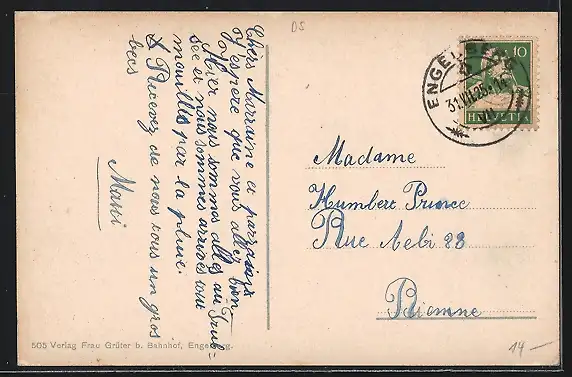 DS
Chers Marraine et parrains
J'espère que vous allez bien
Hier nous sommes allés au Trub-
see et nous sommes arrivés tout
mouillés par la pluie.
& Recevez de nous tous un gros
becs
Mani
ENGELBERG
31.VII.25
10
HELVETIA
Madame
Humbert Prince
Rue Aebi 23
Bienne
505 Verlag Frau Grüter b. Bahnhof, Engelberg.
14-